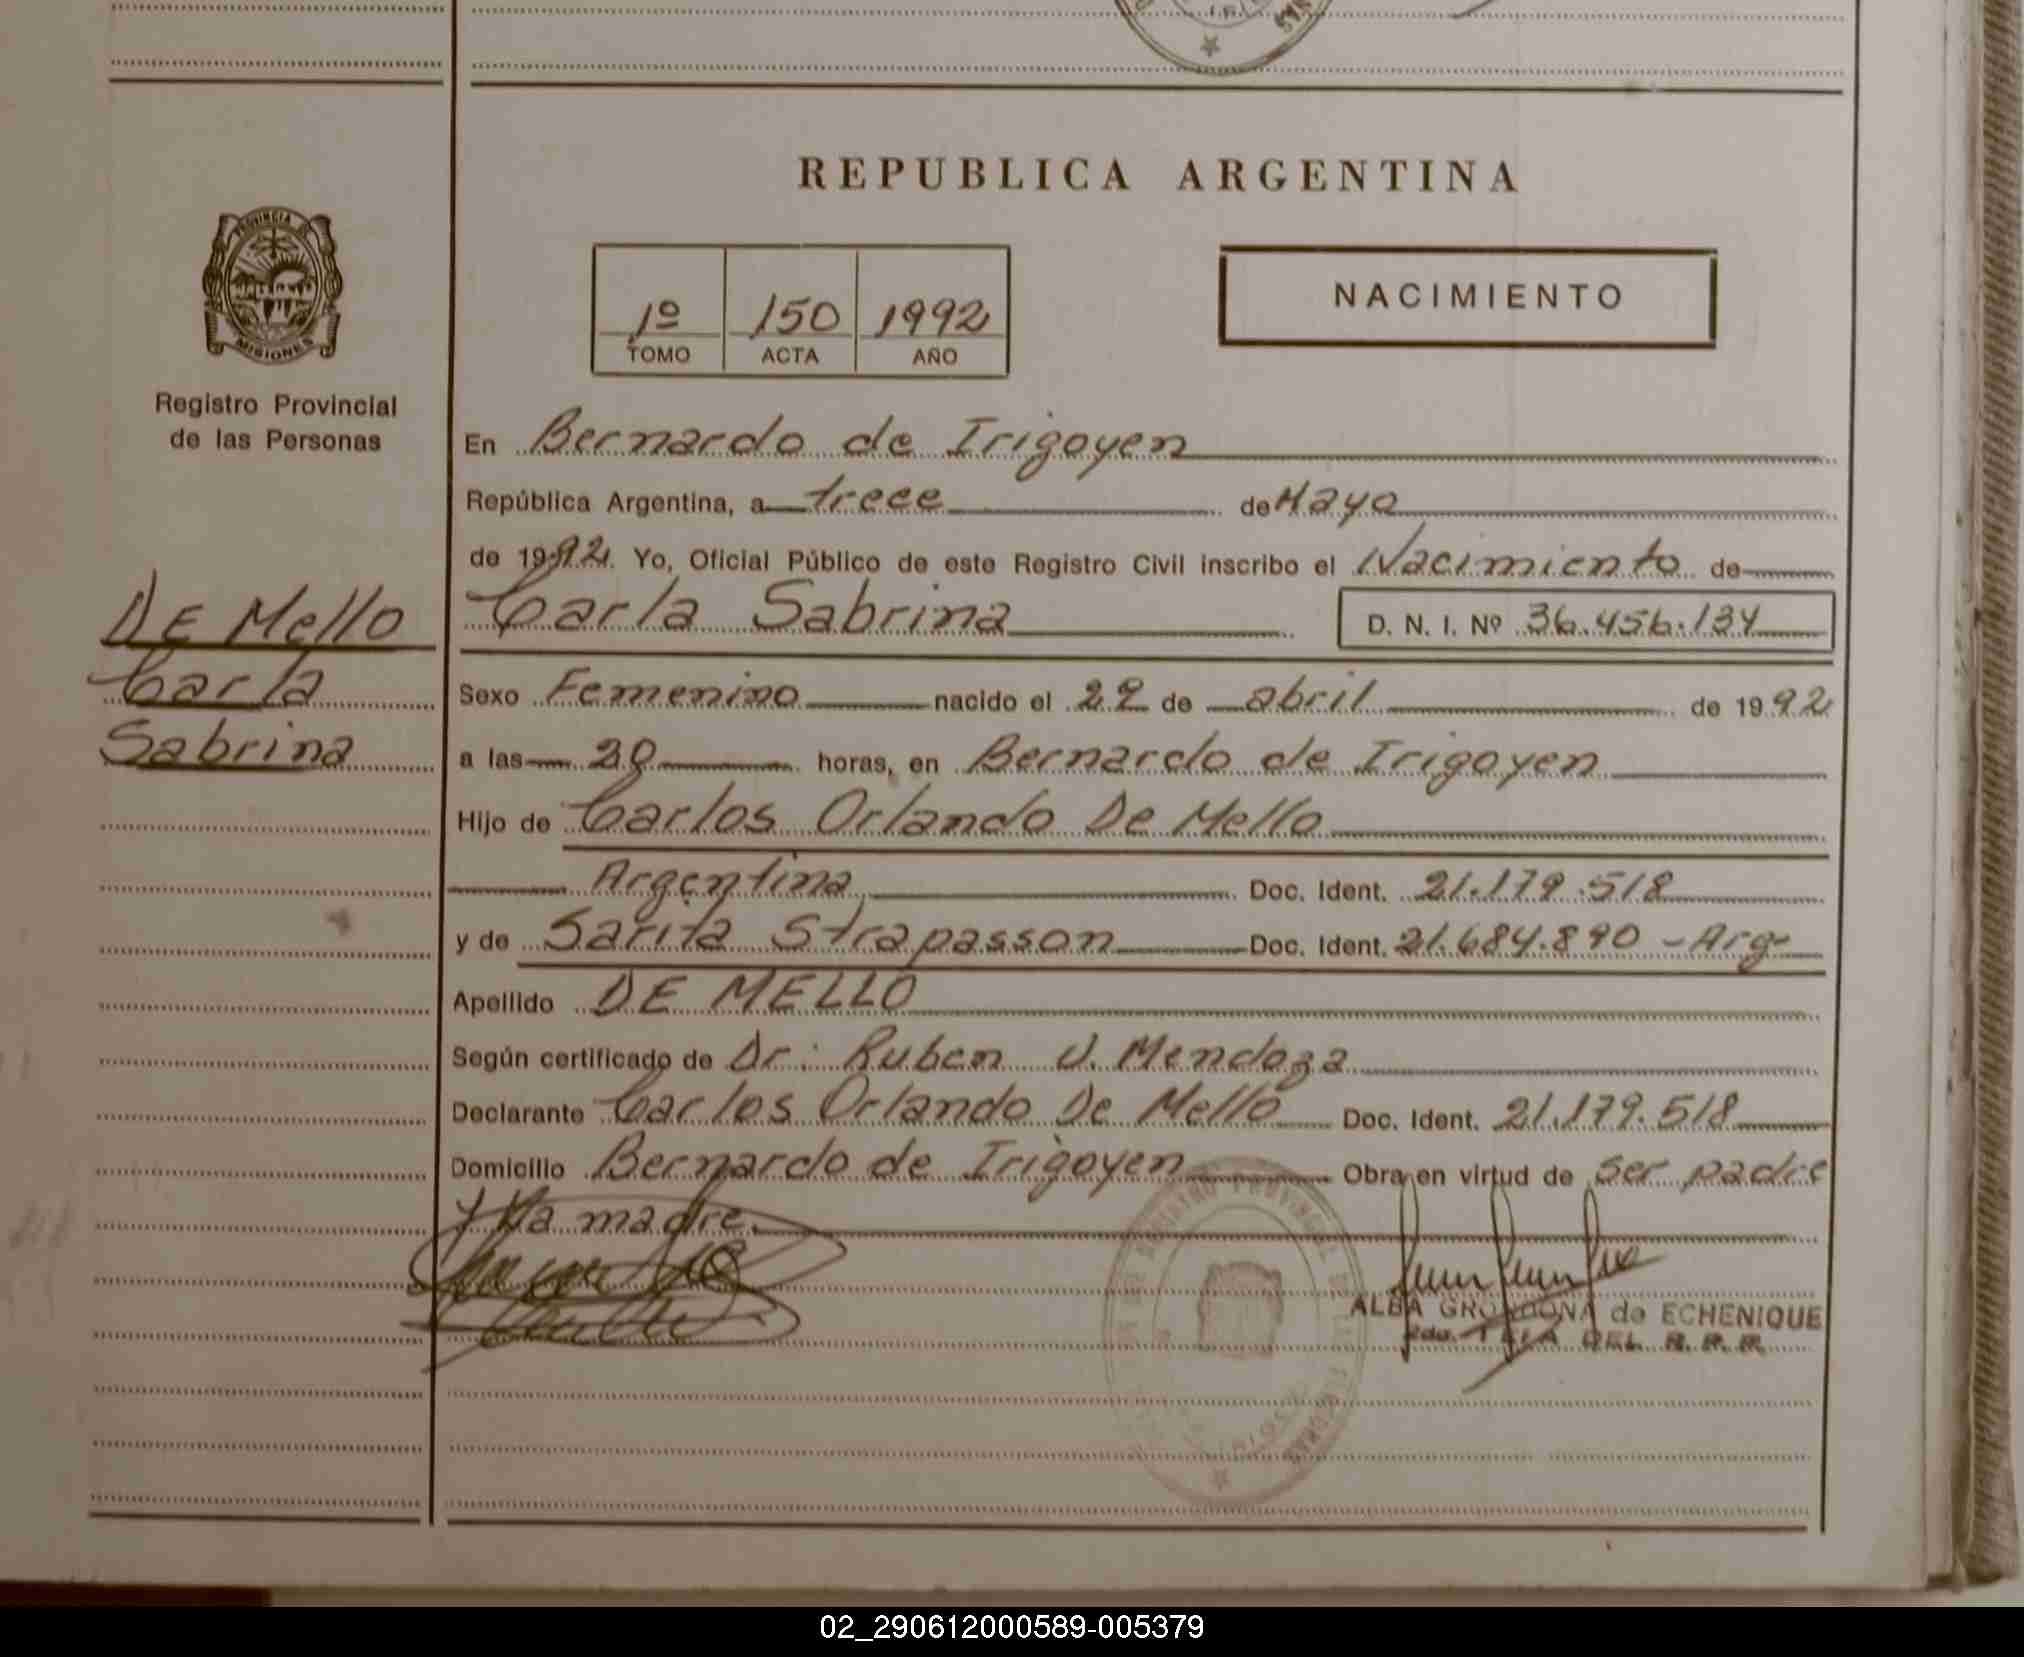 REPUBLICA ARGENTINA
PROVINCIA DE
MISIONES
Registro Provincial
de las Personas
1º 150 1992
TOMO ACTA AÑO
NACIMIENTO
En Bernardo de Irigoyen
República Argentina, a trece de Mayo
de 1992. Yo, Oficial Público de este Registro Civil inscribo el Nacimiento de
De Mello
Carla
Sabrina
Carla Sabrina D. N. I. Nº 36.456.134
Sexo Femenino nacido el 29 de abril de 1992
a las 20 horas, en Bernardo de Irigoyen
Hijo de Carlos Orlando De Mello
Argentina Doc. Ident. 21.179.518
y de Sarita Strapasson Doc. Ident. 21.684.890 - Arg
Apellido DE MELLO
Según certificado de Dr: Ruben V. Mendoza
Declarante Carlos Orlando De Mello Doc. Ident. 21.179.518
Domicilio Bernardo de Irigoyen Obra en virtud de ser padre
y la madre.
ALBA GRONDONA de ECHENIQUE
DEL R. P. P.
02_290612000589-005379